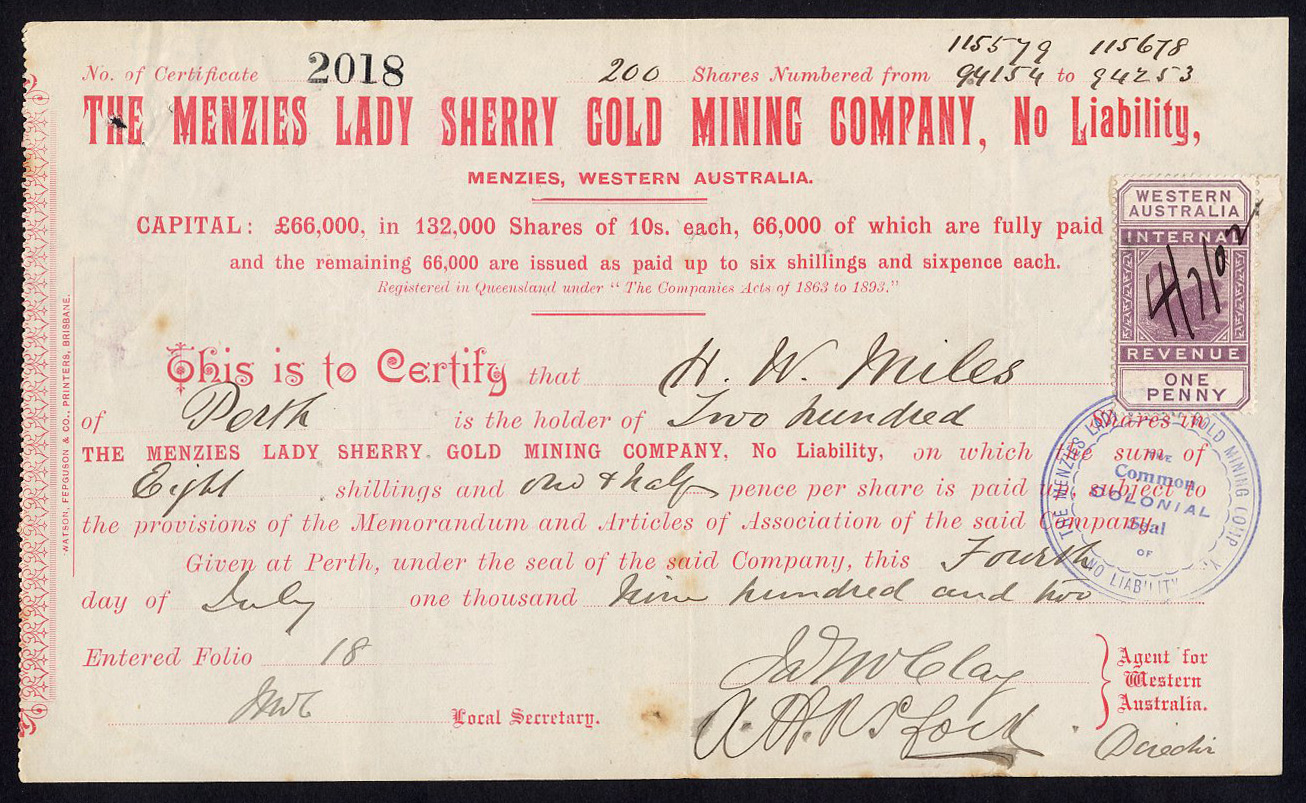 115579 115678
No. of Certificate 2018 200 Shares Numbered from 94154 to 94253
THE MENZIES LADY SHERRY GOLD MINING COMPANY, No Liability,
MENZIES, WESTERN AUSTRALIA.
CAPITAL: £66,000, in 132,000 Shares of 10s. each, 66,000 of which are fully paid
and the remaining 66,000 are issued as paid up to six shillings and sixpence each.
Registered in Queensland under "The Companies Acts of 1863 to 1893."
WESTERN
AUSTRALIA
INTERNAL
4/7/02
REVENUE
ONE
PENNY
This is to Certify that H. W. Miles
of Perth is the holder of Two hundred Shares in
THE MENZIES LADY SHERRY GOLD MINING COMPANY, No Liability, on which the sum of
Eight shillings and one & half pence per share is paid up, subject to
the provisions of the Memorandum and Articles of Association of the said Company.
Given at Perth, under the seal of the said Company, this Fourth
day of July one thousand Nine hundred and two
THE MENZIES LADY GOLD MINING COMP NO LIABILITY
THE
Common
COLONIAL
Seal
OF
Entered Folio 18
Agent for
Western
Australia.
Local Secretary.
WATSON, FERGUSON & CO., PRINTERS, BRISBANE.